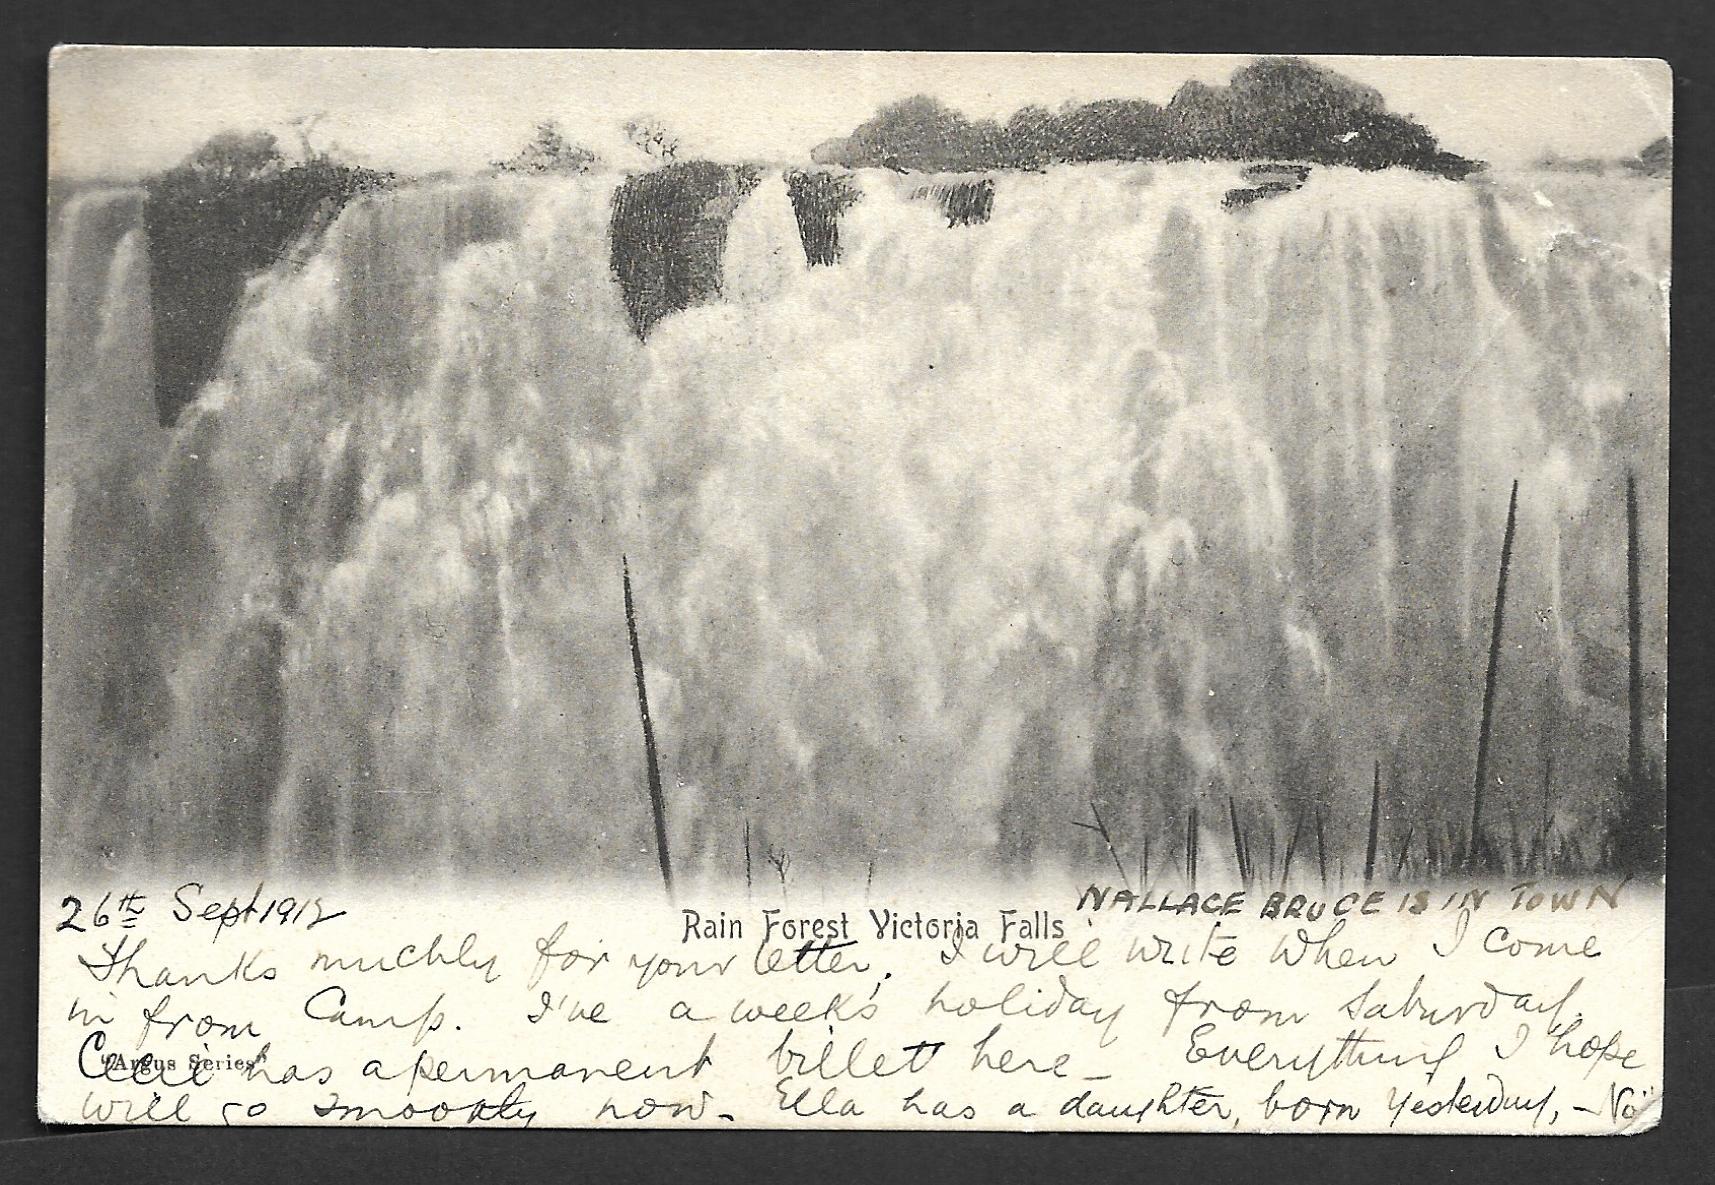 26th Sept 1912
WALLACE BRUCE IS IN TOWN
Rain Forest Victoria Falls
Thanks muchly for your letter. I will write when I come
in from Camp. I've a week's holiday from Saturday.
"Argus Series"
Cecil has a permanent billett here - Everything I hope
will go smoothly now - Ella has a daughter, born yesterday, -